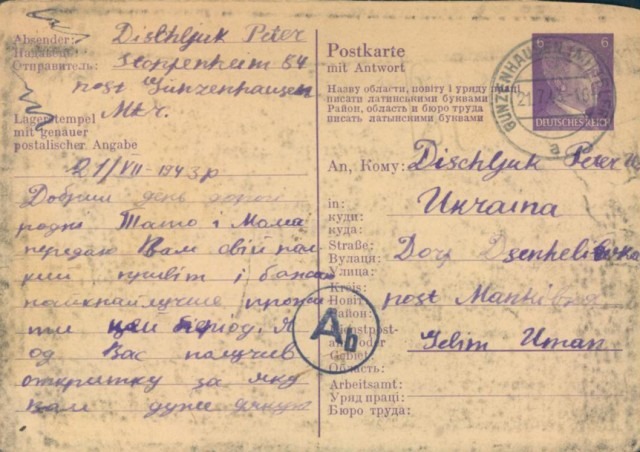 Absender:
Надавець:
Отправитель:
Dischljuk Peter
Stoppenheim 54
post Gunzenhausen
Mkr.
Lagerstempel
mit genauer
postalischer Angabe
21/VII-1943р
Добрий день дорогі
родні Тато і Мама
передаю Вам свій
привіт і бажаю
найкнайлучше прожи
ти цей період. Я
од Вас получив
открытку за яку
Вам дуже дякую
Postkarte
mit Antwort
Назву области, повіту і уряду праці
писати латинськими буквами
Район, область и бюро труда
писать латынскими буквами
6 6
DEUTSCHES REICH
GUNZENHAUSEN
a
An, Кому: Dischljuk Peter
in:
куди:
куда:
Ukraina
Straße:
Вулаця:
Улица:
Dorf
Kreis:
Повіт
Район:
post Mankiwka
Dienstpost-
amt oder
Gebiet
Область:
Gebiet Uman
Arbeitsamt:
Уряд праці:
Бюро труда:
Ab